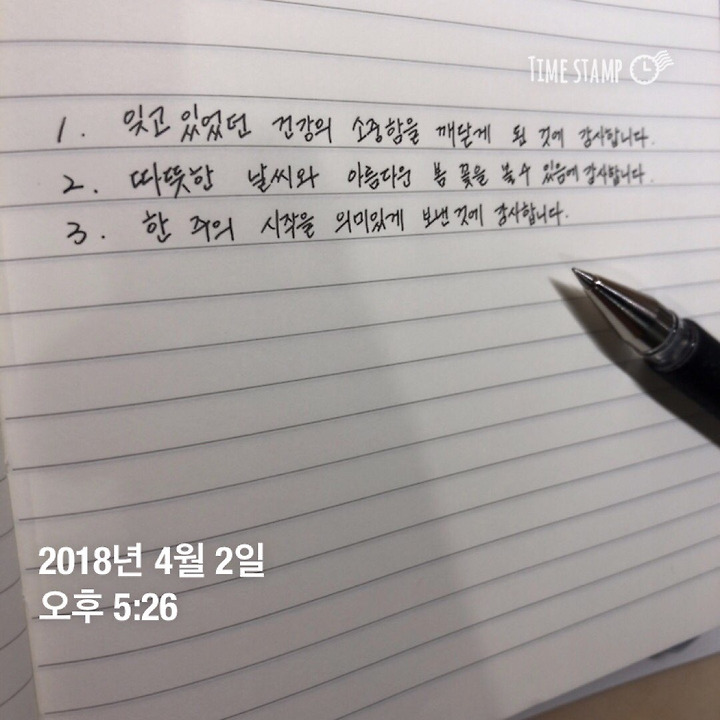 TIME STAMP
1. 잊고 있었던 건강의 소중함을 깨닫게 된 것에 감사합니다.
2. 따뜻한 날씨와 아름다운 봄 꽃을 볼 수 있음에 감사합니다.
3. 한 주의 시작을 의미있게 보낸 것에 감사합니다.
2018년 4월 2일
오후 5:26